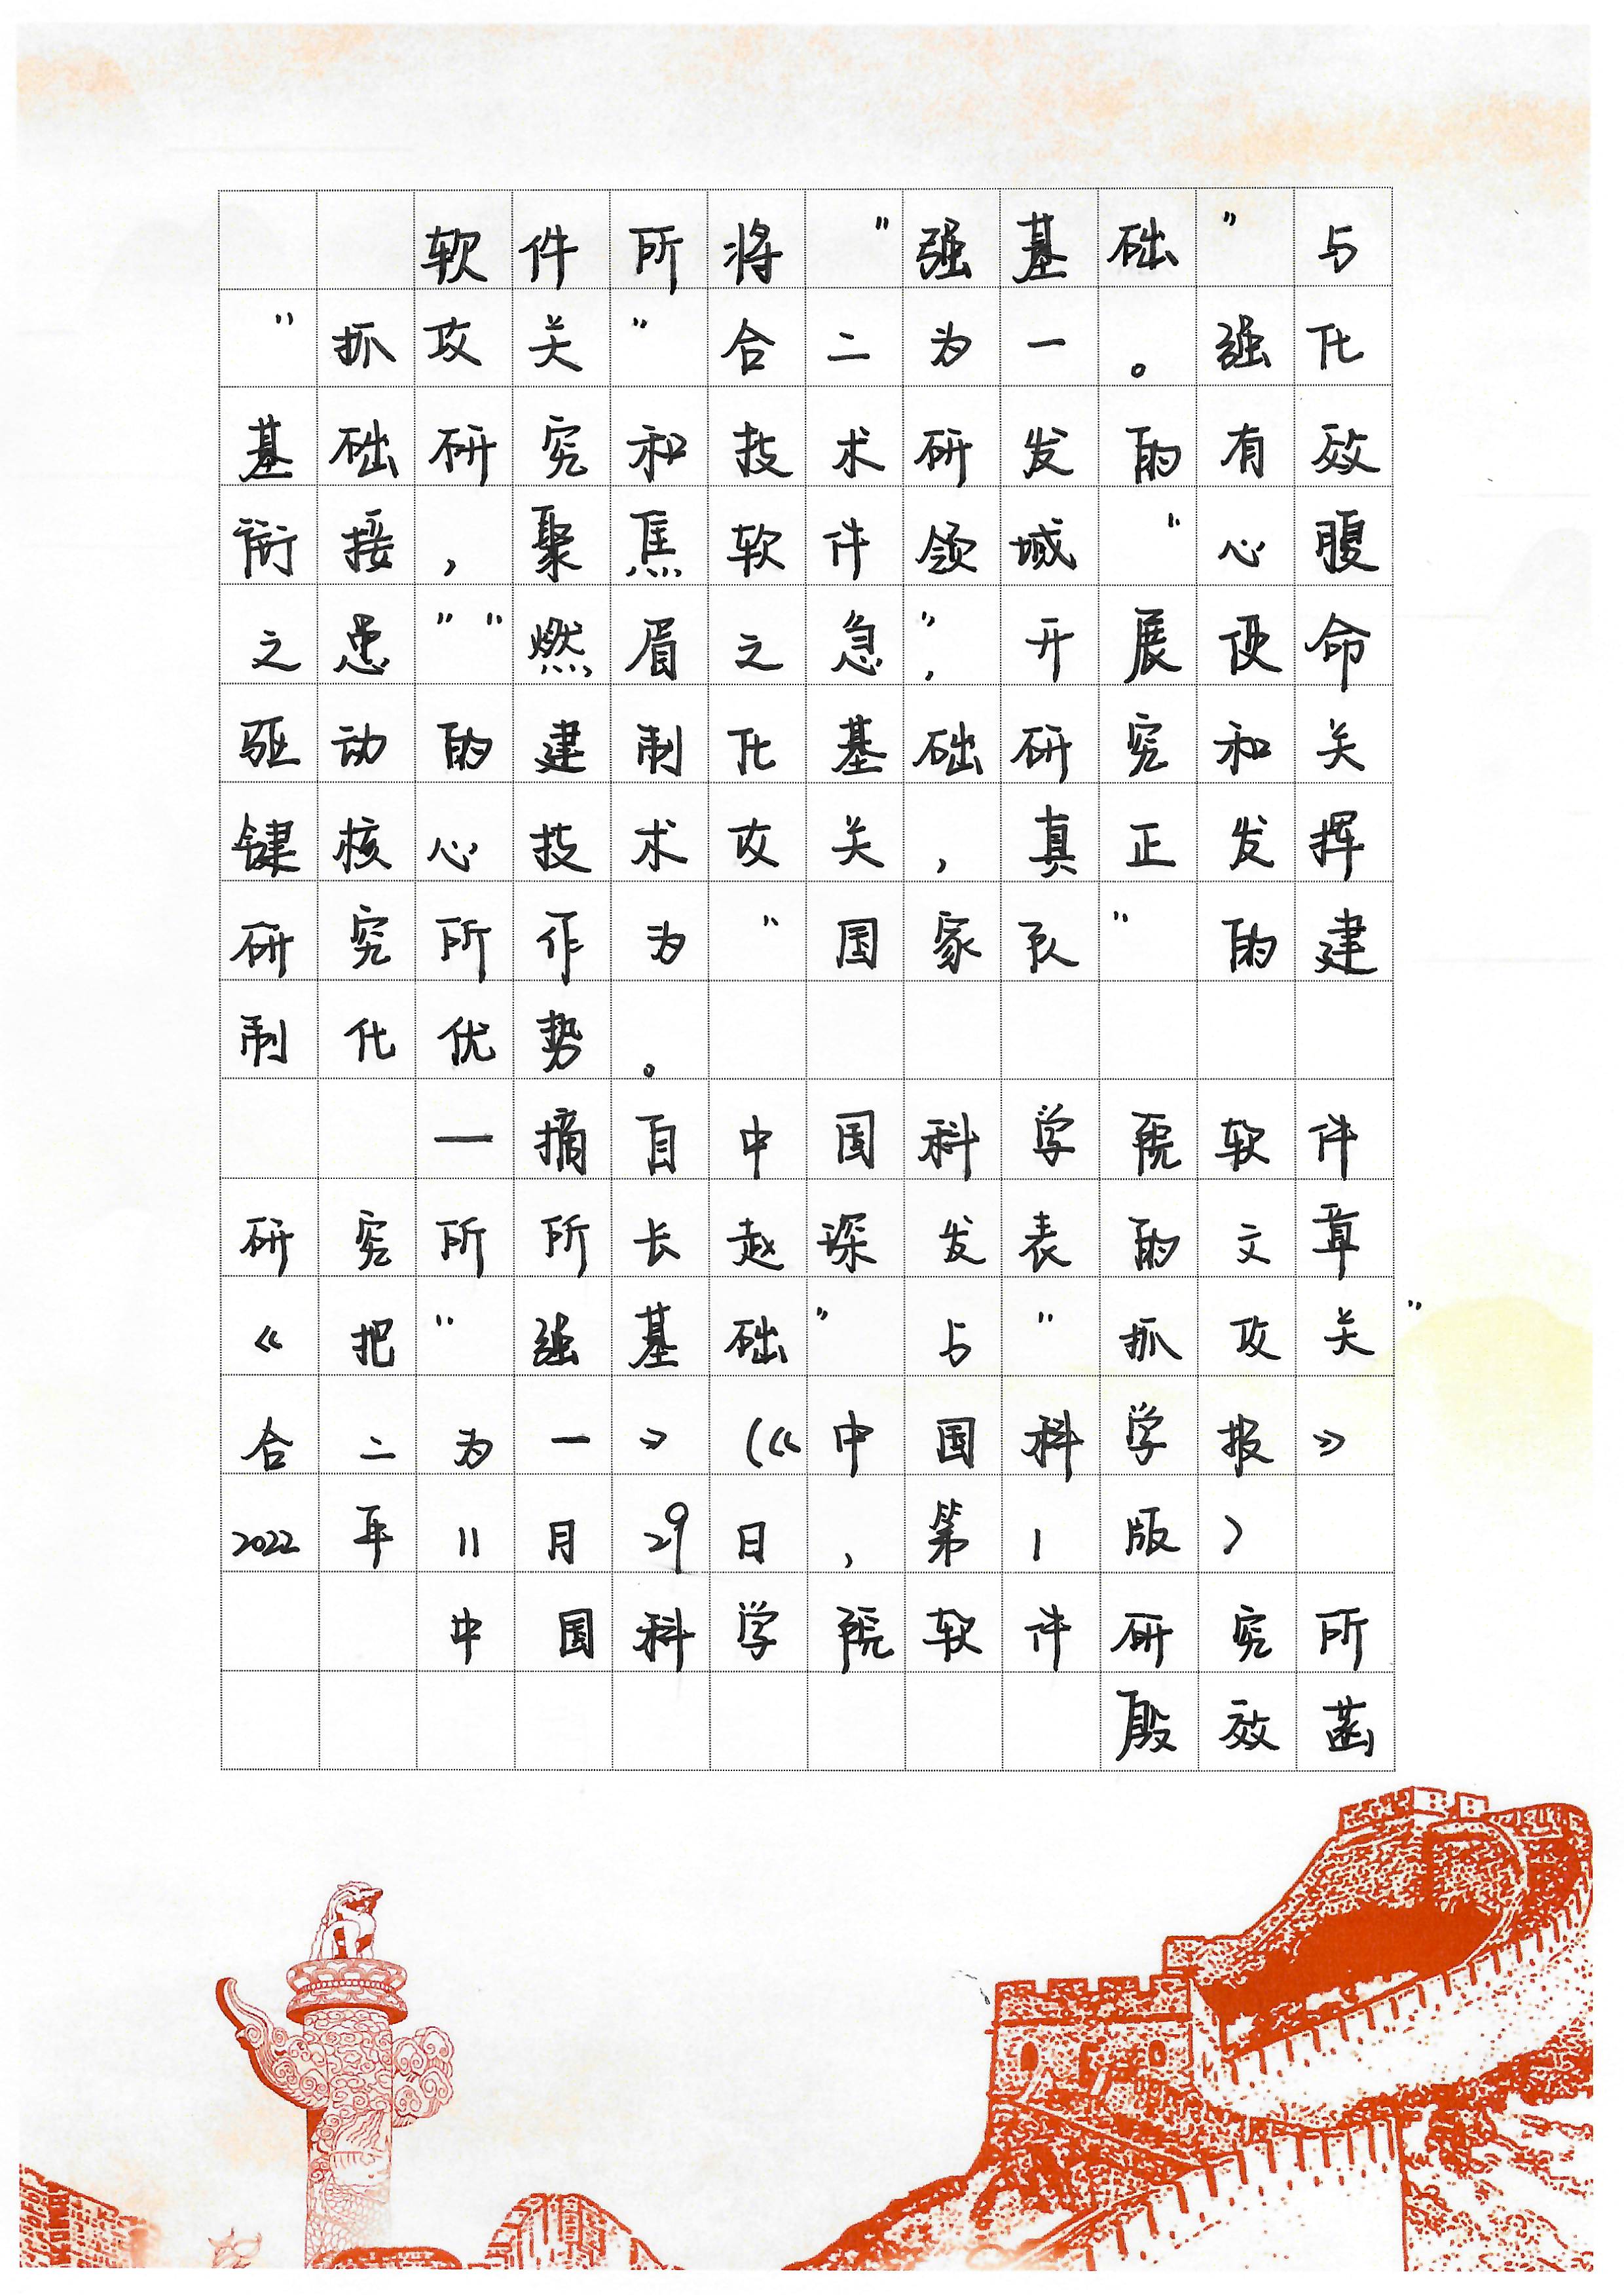 软件所将“强基础”与
“抓攻关”合二为一。强化
基础研究和技术研发的有效
衔接，聚焦软件领域“心腹
之患”“燃眉之急”，开展使命
驱动的建制化基础研究和关
键核心技术攻关，真正发挥
研究所作为“国家队”的建
制化优势。
—摘自中国科学院软件
研究所所长赵琛发表的文章
《把“强基础”与“抓攻关”
合二为一》（《中国科学报》
2022年11月29日，第1版）
中国科学院软件研究所
殷效菡